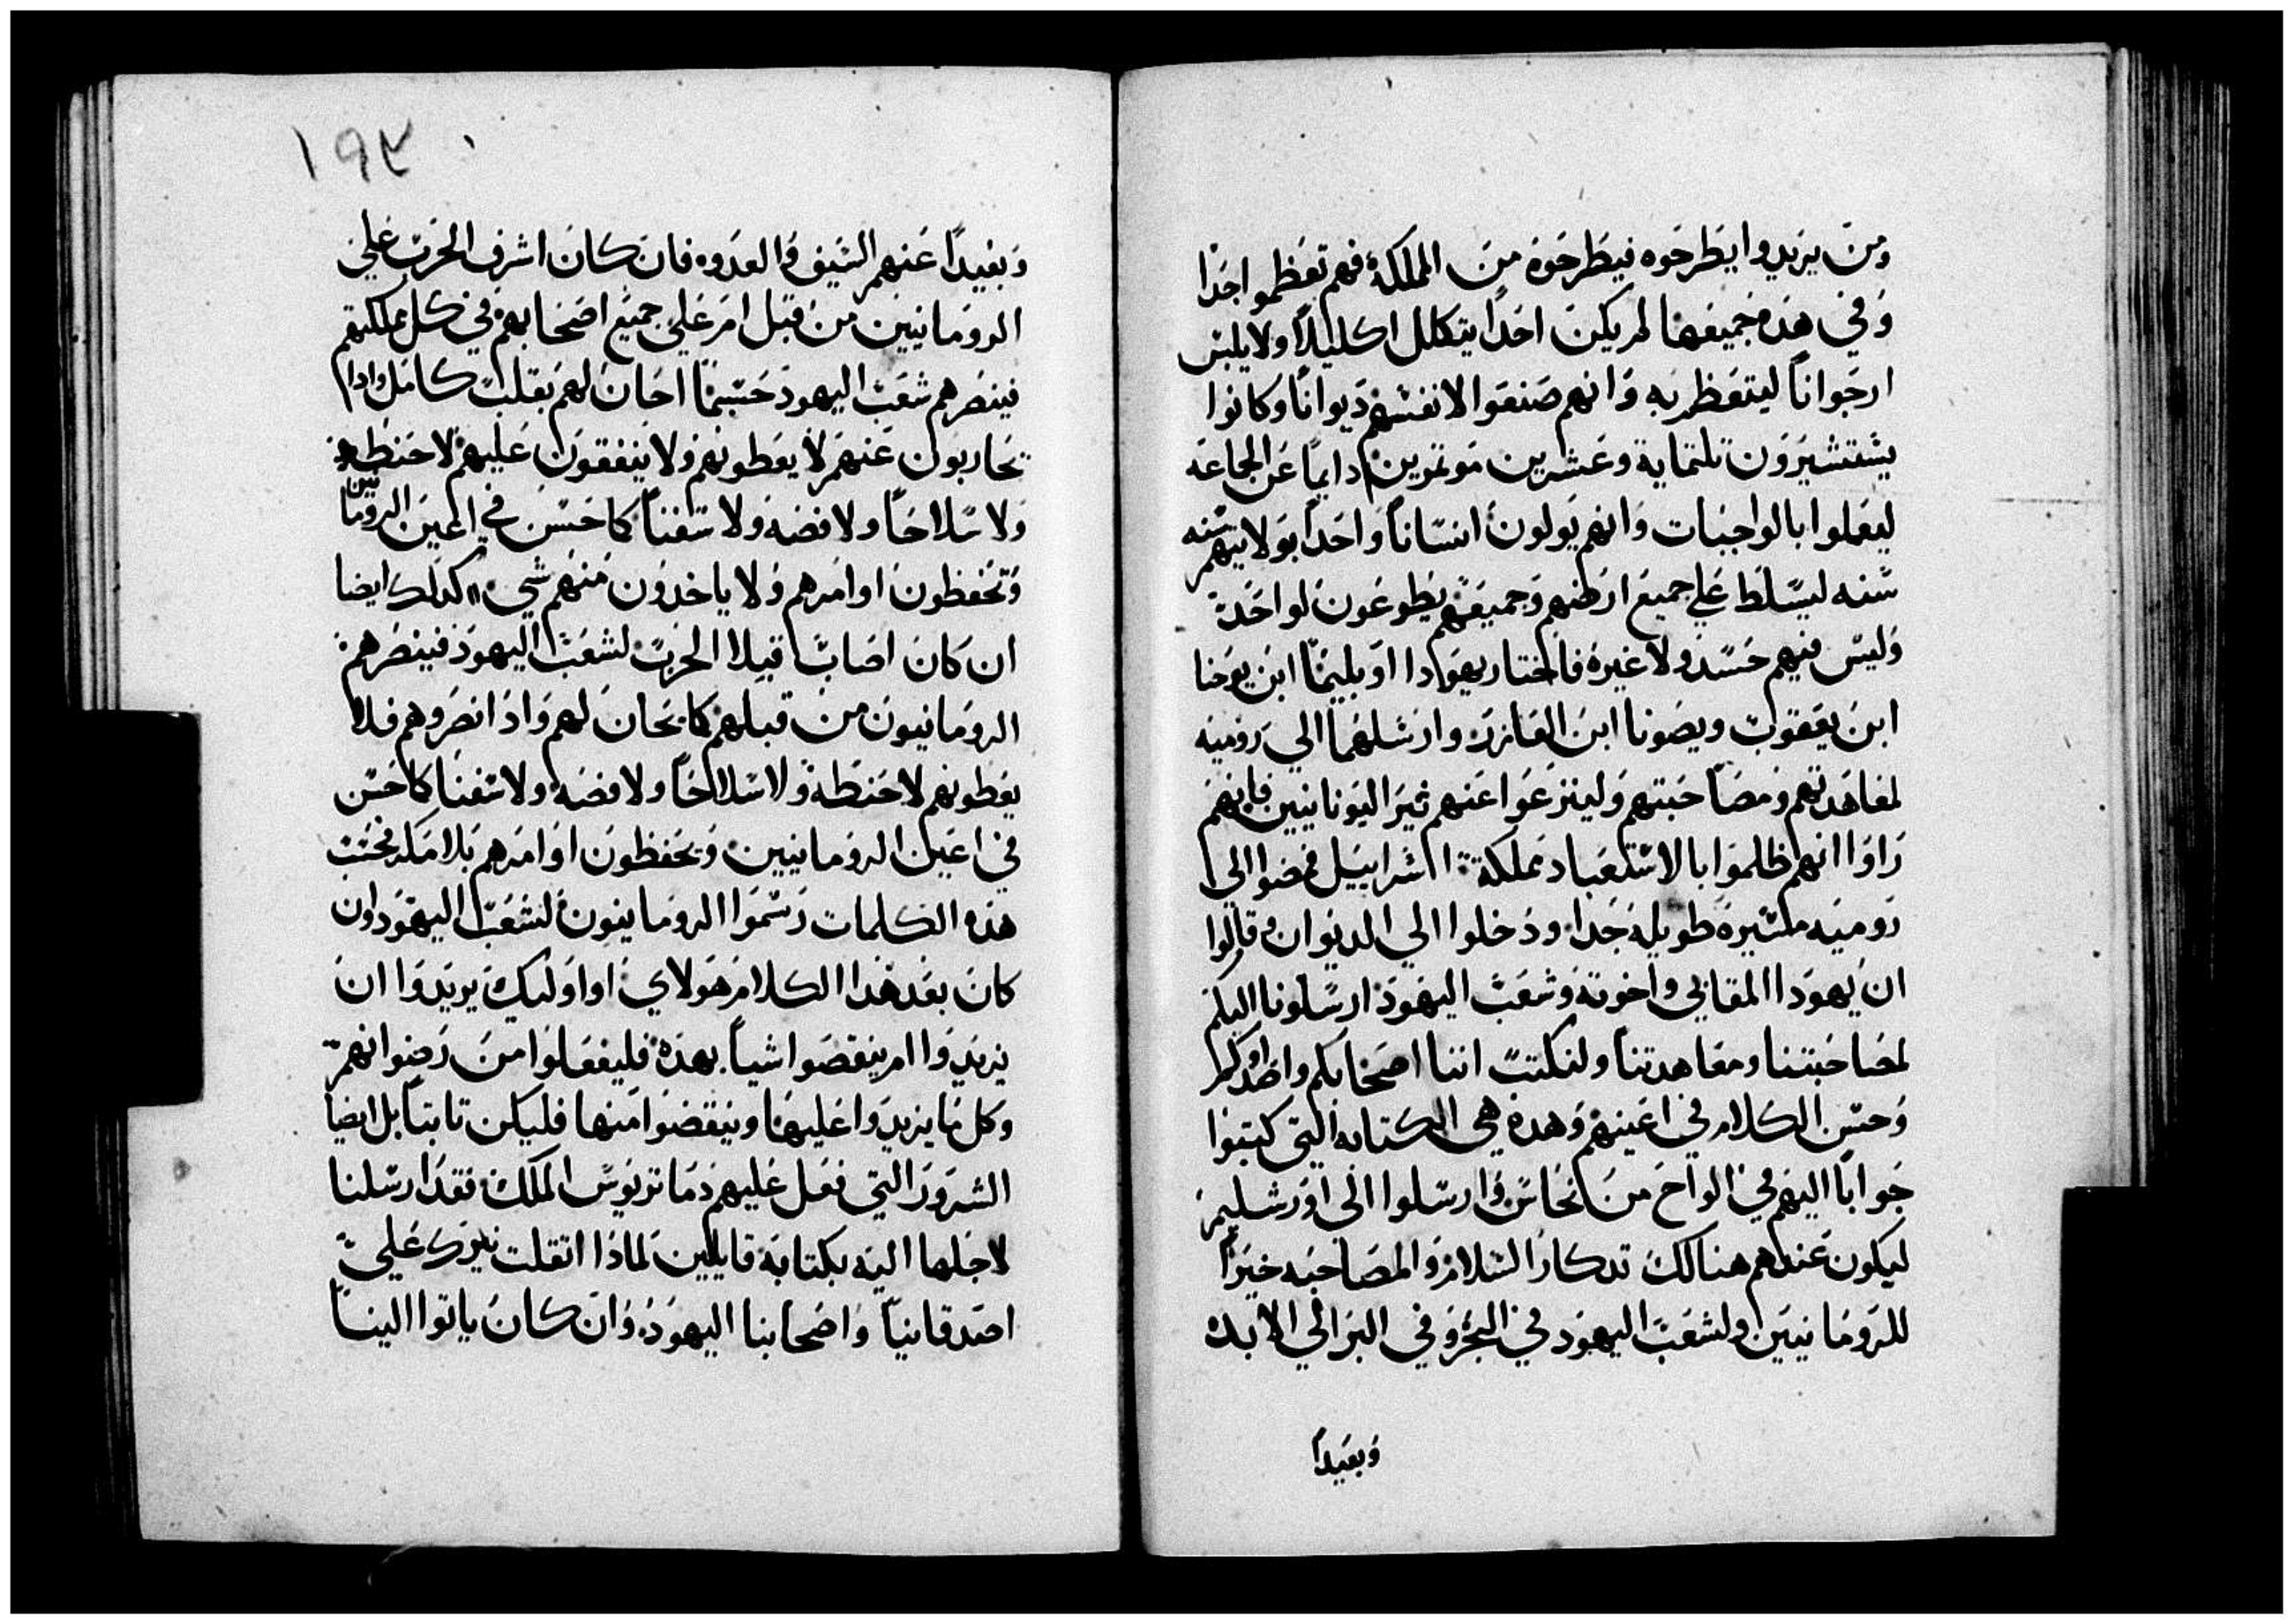 ومن يريدوا يطرحوه فيطرحوه من المملكة فهم تعظموا جدا
وفي هذه جميعها لم يكن احدا يتكلل اكليلا ولا يلبس
ارجوانا ليتعظم به وانهم صنعوا لانفسهم ديوانا وكانوا
يشتشيرون تلتماية وعشرين موتمرين دايما عن الجماعه
ليعملوا بالواجبات وانهم يولون انسانا واحدا بولايتهم سنه
سنه ليسلط علي جميع ارضهم وجميعهم يطوعون لواحد
وليس فيهم حسد ولا غيره فاختار يهودا اوبليما ابن يوحنا
ابن يعقوب ويصونا ابن العازر وارسلهما الي روميه
لمعاهدتهم ومصاحبتهم ولينزعوا عنهم نير اليونانيين فانهم
راوا انهم ظلموا بالاستعباد مملكة اسراييل فمضوا الي
روميه مسيره طويله جدا ودخلوا الي الديوان وقالوا
ان يهودا المقابي واخوته وشعب اليهود ارسلونا اليكم
لمصاحبتنا ومعاهدتنا ولنكتب اننا اصحابكم واصدقاوكم
وحسن الكلام في اعينهم وهده هي الكتابه التي كتبوا
جوابا اليهم في الواح من نحاس وارسلوا الي اورشليم
ليكون عندهم هنالك تدكار السلام والمصاحبه خيرا
للرومانيين ولشعب اليهود في البحر وفي البر الي الابد
وبعيدا
١٩٣
وبعيدا عنهم السيف والعدو فان كان اشرف الحرب علي
الرومانيين من قبل امر علي جميع اصحابهم في كل مملكتهم
فينصرهم شعب اليهود حسبما احان لهم بقلب كامل وادا
يحاربون عنهم لا يعطونهم ولا ينفقون عليهم لا حنطه
ولا سلاحا ولا فضه ولا سفنا كما حسن في اعين الرومانيين
وتحفظون اوامرهم ولا ياخدون منهم شي كدلك ايضا
ان كان اصاب قبلا الحرب لشعب اليهود فينصرهم
الرومانيون من قبلهم كما يحان لهم وادا نصروهم فلا
يعطونهم لا حنطة ولا سلاحا ولا فضه ولا سفنا كما حسن
في اعين الرومانيين ويحفظون اوامرهم بلا مكر فحسب
هذه الكلمات رسموا الرومانيون لشعب اليهود وان
كان بعد هذا الكلام هولاي او اوليك يريدوا ان
يزيدوا ام ينقصوا شيا بهده فليفعلوا من رضوانهم
وكل ما يزيدوا عليها وينقضوا منها فليكن تابتا بل ايضا
الشرور التي فعل عليهم دماتريوس الملك فقد ارسلنا
لاجلها اليه بكتابة قايلين لمادا اتقلت نيرك علي
اصدقانيا واصحابنا اليهود وان كان ياتوا الينا